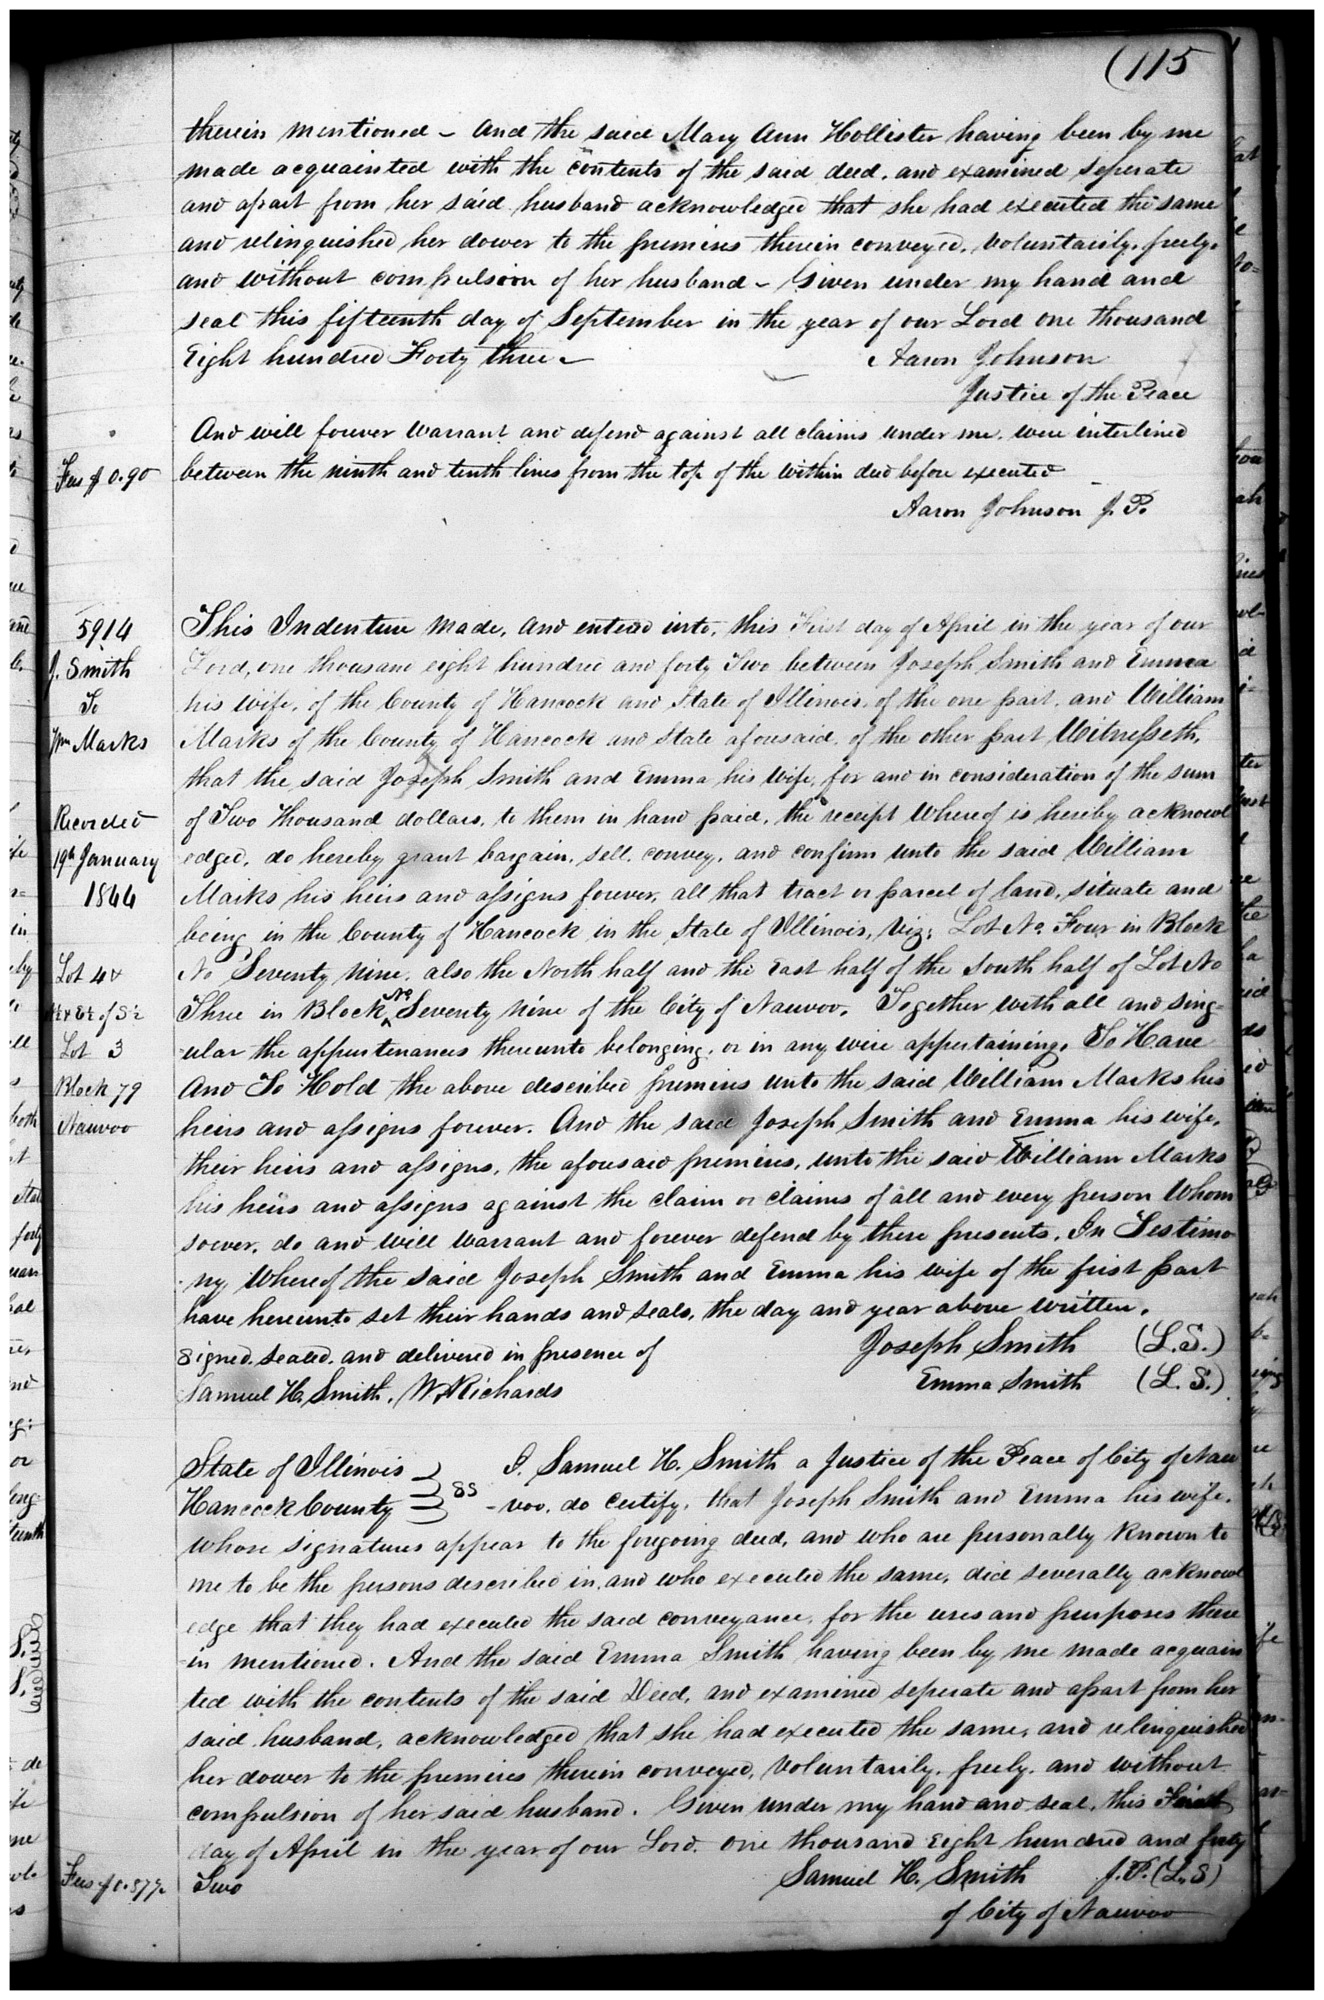 (115
therein mentioned – And the said Mary Ann Hollister having been by me
made acquainted with the contents of the said deed, and examined seperate
and apart from her said husband acknowledged that she had executed the same
and relinquished her dower to the premises therein conveyed, voluntarily, freely,
and without compulsion of her husband – Given under my hand and
seal this fifteenth day of September in the year of our Lord one thousand
Eight hundred Forty three –
Aaron Johnson
Justice of the Peace
And will forever warrant and defend against all claims under me, were interlined
Fees $0.90
between the ninth and tenth lines from the top of the within deed before executed
Aaron Johnson J. P.
5914
J. Smith
To
Wm Marks
Recorded
19th January
1844
Lot 4 &
N½ & E½ of S½
Lot 3
Block 79
Nauvoo
This Indenture made, and entered into, this First day of April in the year of our
Lord, one thousand eight hundred and forty Two between Joseph Smith and Emma
his wife, of the County of Hancock and State of Illinois, of the one part, and William
Marks of the County of Hancock and State aforesaid, of the other part Witnesseth,
that the said Joseph Smith and Emma his wife, for and in consideration of the sum
of Two Thousand dollars, to them in hand paid, the receipt whereof is hereby acknowl
edged, do hereby grant bargain, sell, convey, and confirm unto the said William
Marks his heirs and assigns forever, all that tract or parcel of land, situate and
being in the County of Hancock in the State of Illinois, Viz; Lot No. Four in Block
No Seventy nine, also the North half and the East half of the South half of Lot No
Three in Block No. Seventy nine of the City of Nauvoo. Together with all and sing-
-ular the appurtenances thereunto belonging, or in any wise appertaining, To Have
And To Hold the above described premises unto the said William Marks his
heirs and assigns forever. And the said Joseph Smith and Emma his wife,
their heirs and assigns, the aforesaid premises, unto the said William Marks
his heirs and assigns against the claim or claims of all and every person Whom
soever, do and will warrant and forever defend by these presents. In Testimo
-ny Whereof the said Joseph Smith and Emma his wife of the first part
have hereunto set their hands and seals, the day and year above written.
Signed, sealed, and delivered in presence of
Joseph Smith (L.S.)
Samuel H. Smith, W. Richards
Emma Smith (L. S.)
State of Illinois
Hancock County
SS
I, Samuel H. Smith a Justice of the Peace of City of Nau
-voo, do certify, that Joseph Smith and Emma his wife,
whose signatures appear to the foregoing deed, and who are personally known to
me to be the persons described in, and who executed the same, did severally acknowl
edge that they had executed the said conveyance, for the uses and purposes there
-in mentioned. And the said Emma Smith having been by me made acquain
ted with the contents of the said Deed, and examined seperate and apart from her
said husband, acknowledged that she had executed the same, and relinquished
her dower to the premises therein conveyed, voluntarily, freely, and without
compulsion of her said husband. Given under my hand and seal, this First
day of April in the year of our Lord, one thousand Eight hundred and forty
Two
Samuel H. Smith J. P. (L.S)
of City of Nauvoo